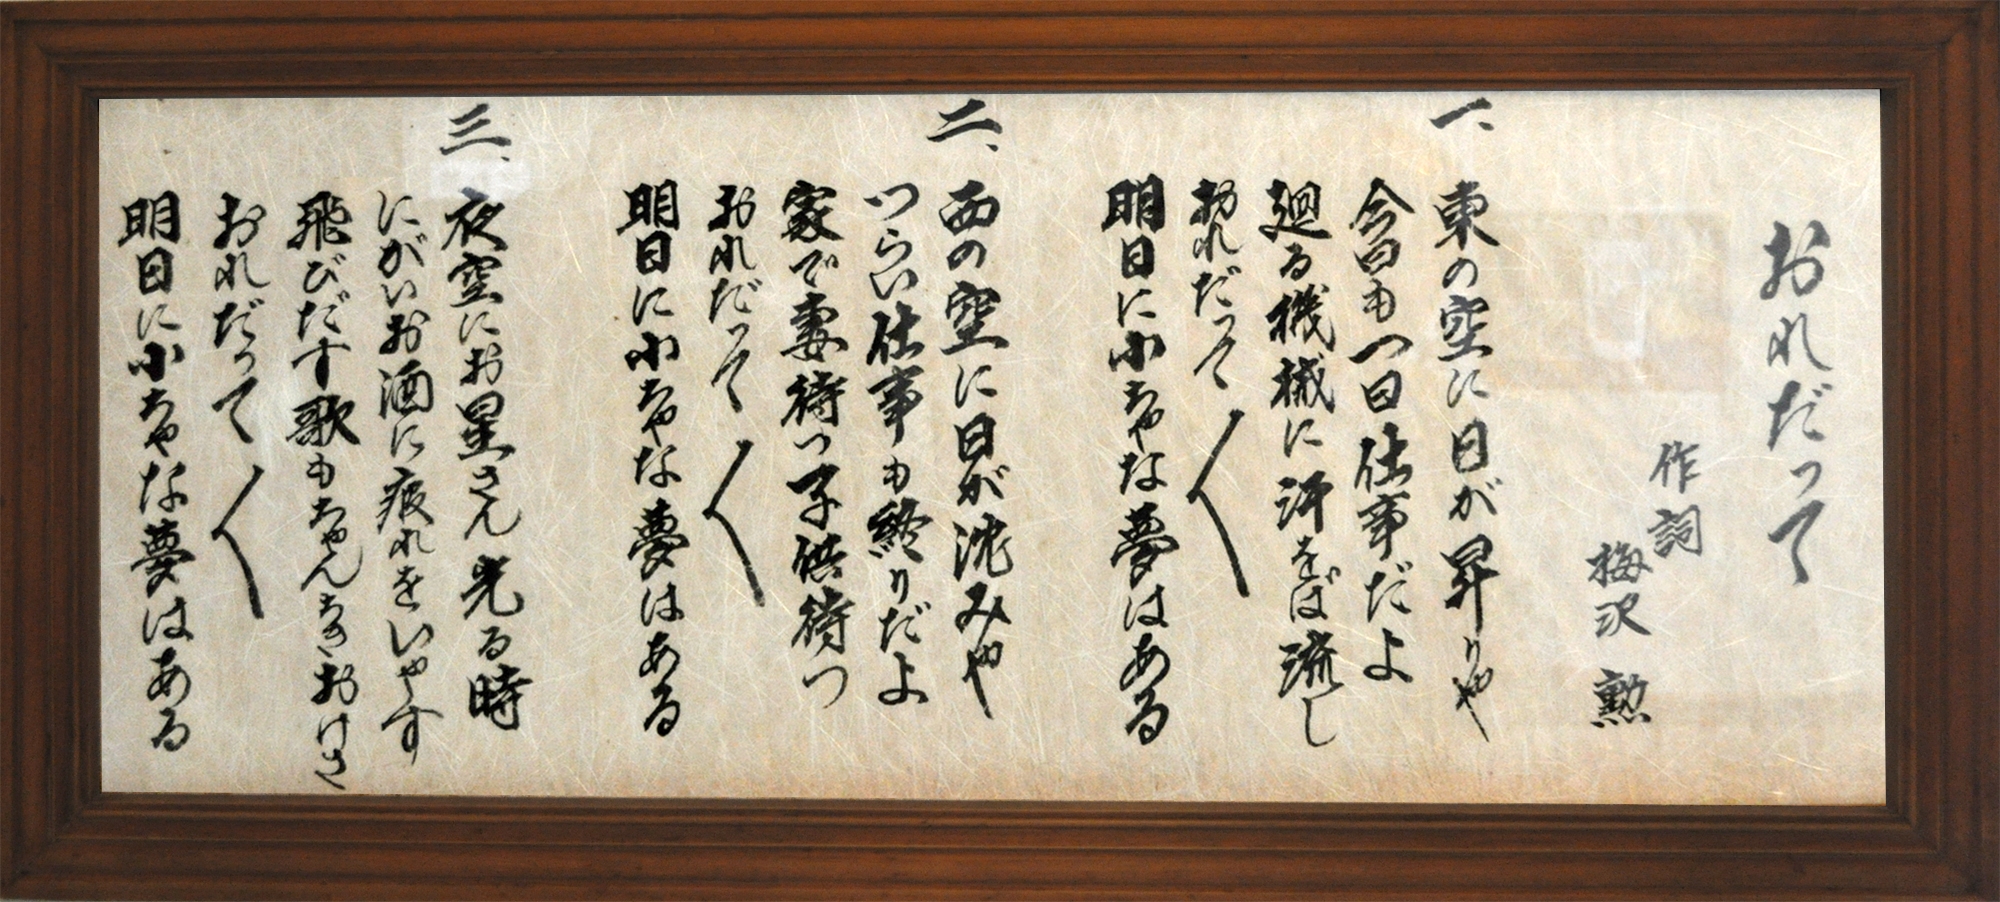 おれだって
作詞
梅沢 勲
一、
東の空に日が昇りゃ
今日も一日仕事だよ
廻る機械に汗をば流し
おれだって〱
明日に小ちゃな夢はある
二、
西の空に日が沈みゃ
つらい仕事も終りだよ
家で妻待つ子供待つ
おれだって〱
明日に小ちゃな夢はある
三、
夜空にお星さん光る時
にがいお酒に疲れをいやす
飛びだす歌もちゃんちきおけさ
おれだって〱
明日に小ちゃな夢はある